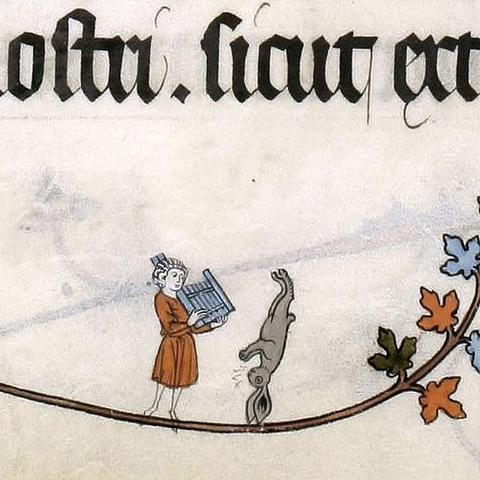 nostri . sicut ext